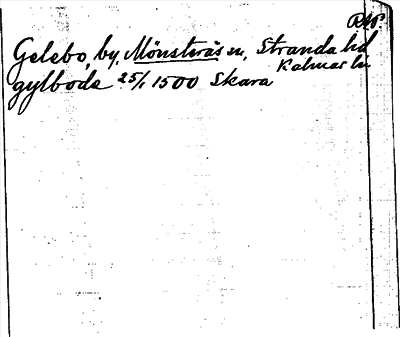 Gelebo, by, Mönsterås sn, Stranda hd
Kalmar ln
gylboda 25/1 1500 Skara